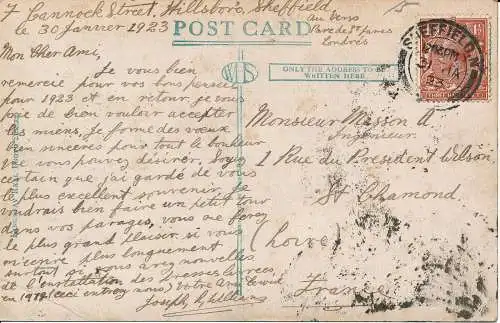 7 Cannock Street, Hillsboro, Sheffield
le 30 Janvier 1923
POST CARD
Au Verso
Vue de St James
Londres
SHEFFIELD
Mon Cher Ami,
Je vous bien
remercie pour vos bons
pour 1923 et en retour je vous
prie de bien vouloir accepter
les miens, je forme des vœux
bien sincères pour tout ce que
vous pouvez désirer. Soyez
certain que j'ai gardé de vous
le plus excellent souvenir. Je
voudrais bien faire un petit tour
dans vos parages, vous me ferez
le plus grand plaisir si vous
m'écrire plus longuement
surtout si vous avez nouvelles
de l'installation des presses
en 1919 (ceci entre nous) Votre Ami
Joseph
ONLY THE ADDRESS TO BE
WRITTEN HERE
Monsieur Masson A
Ingénieur
1 Rue du President Wilson
St Chamond
(Loire)
France